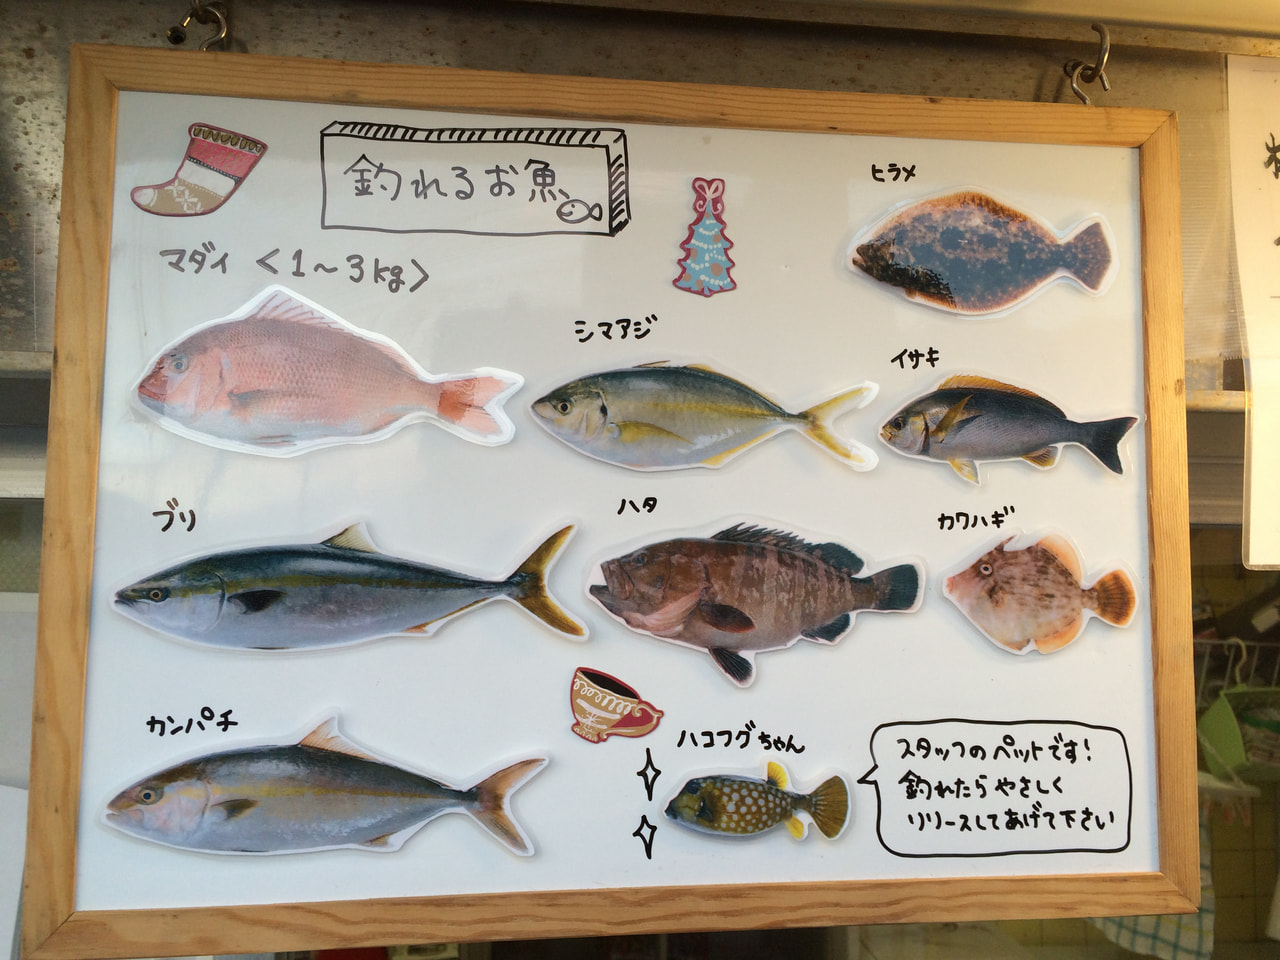 釣れるお魚
マダイ <1~3kg>
ヒラメ
シマアジ
イサキ
ブリ
ハタ
カワハギ
カンパチ
ハコフグちゃん
スタッフのペットです!
釣れたらやさしく
リリースしてあげて下さい